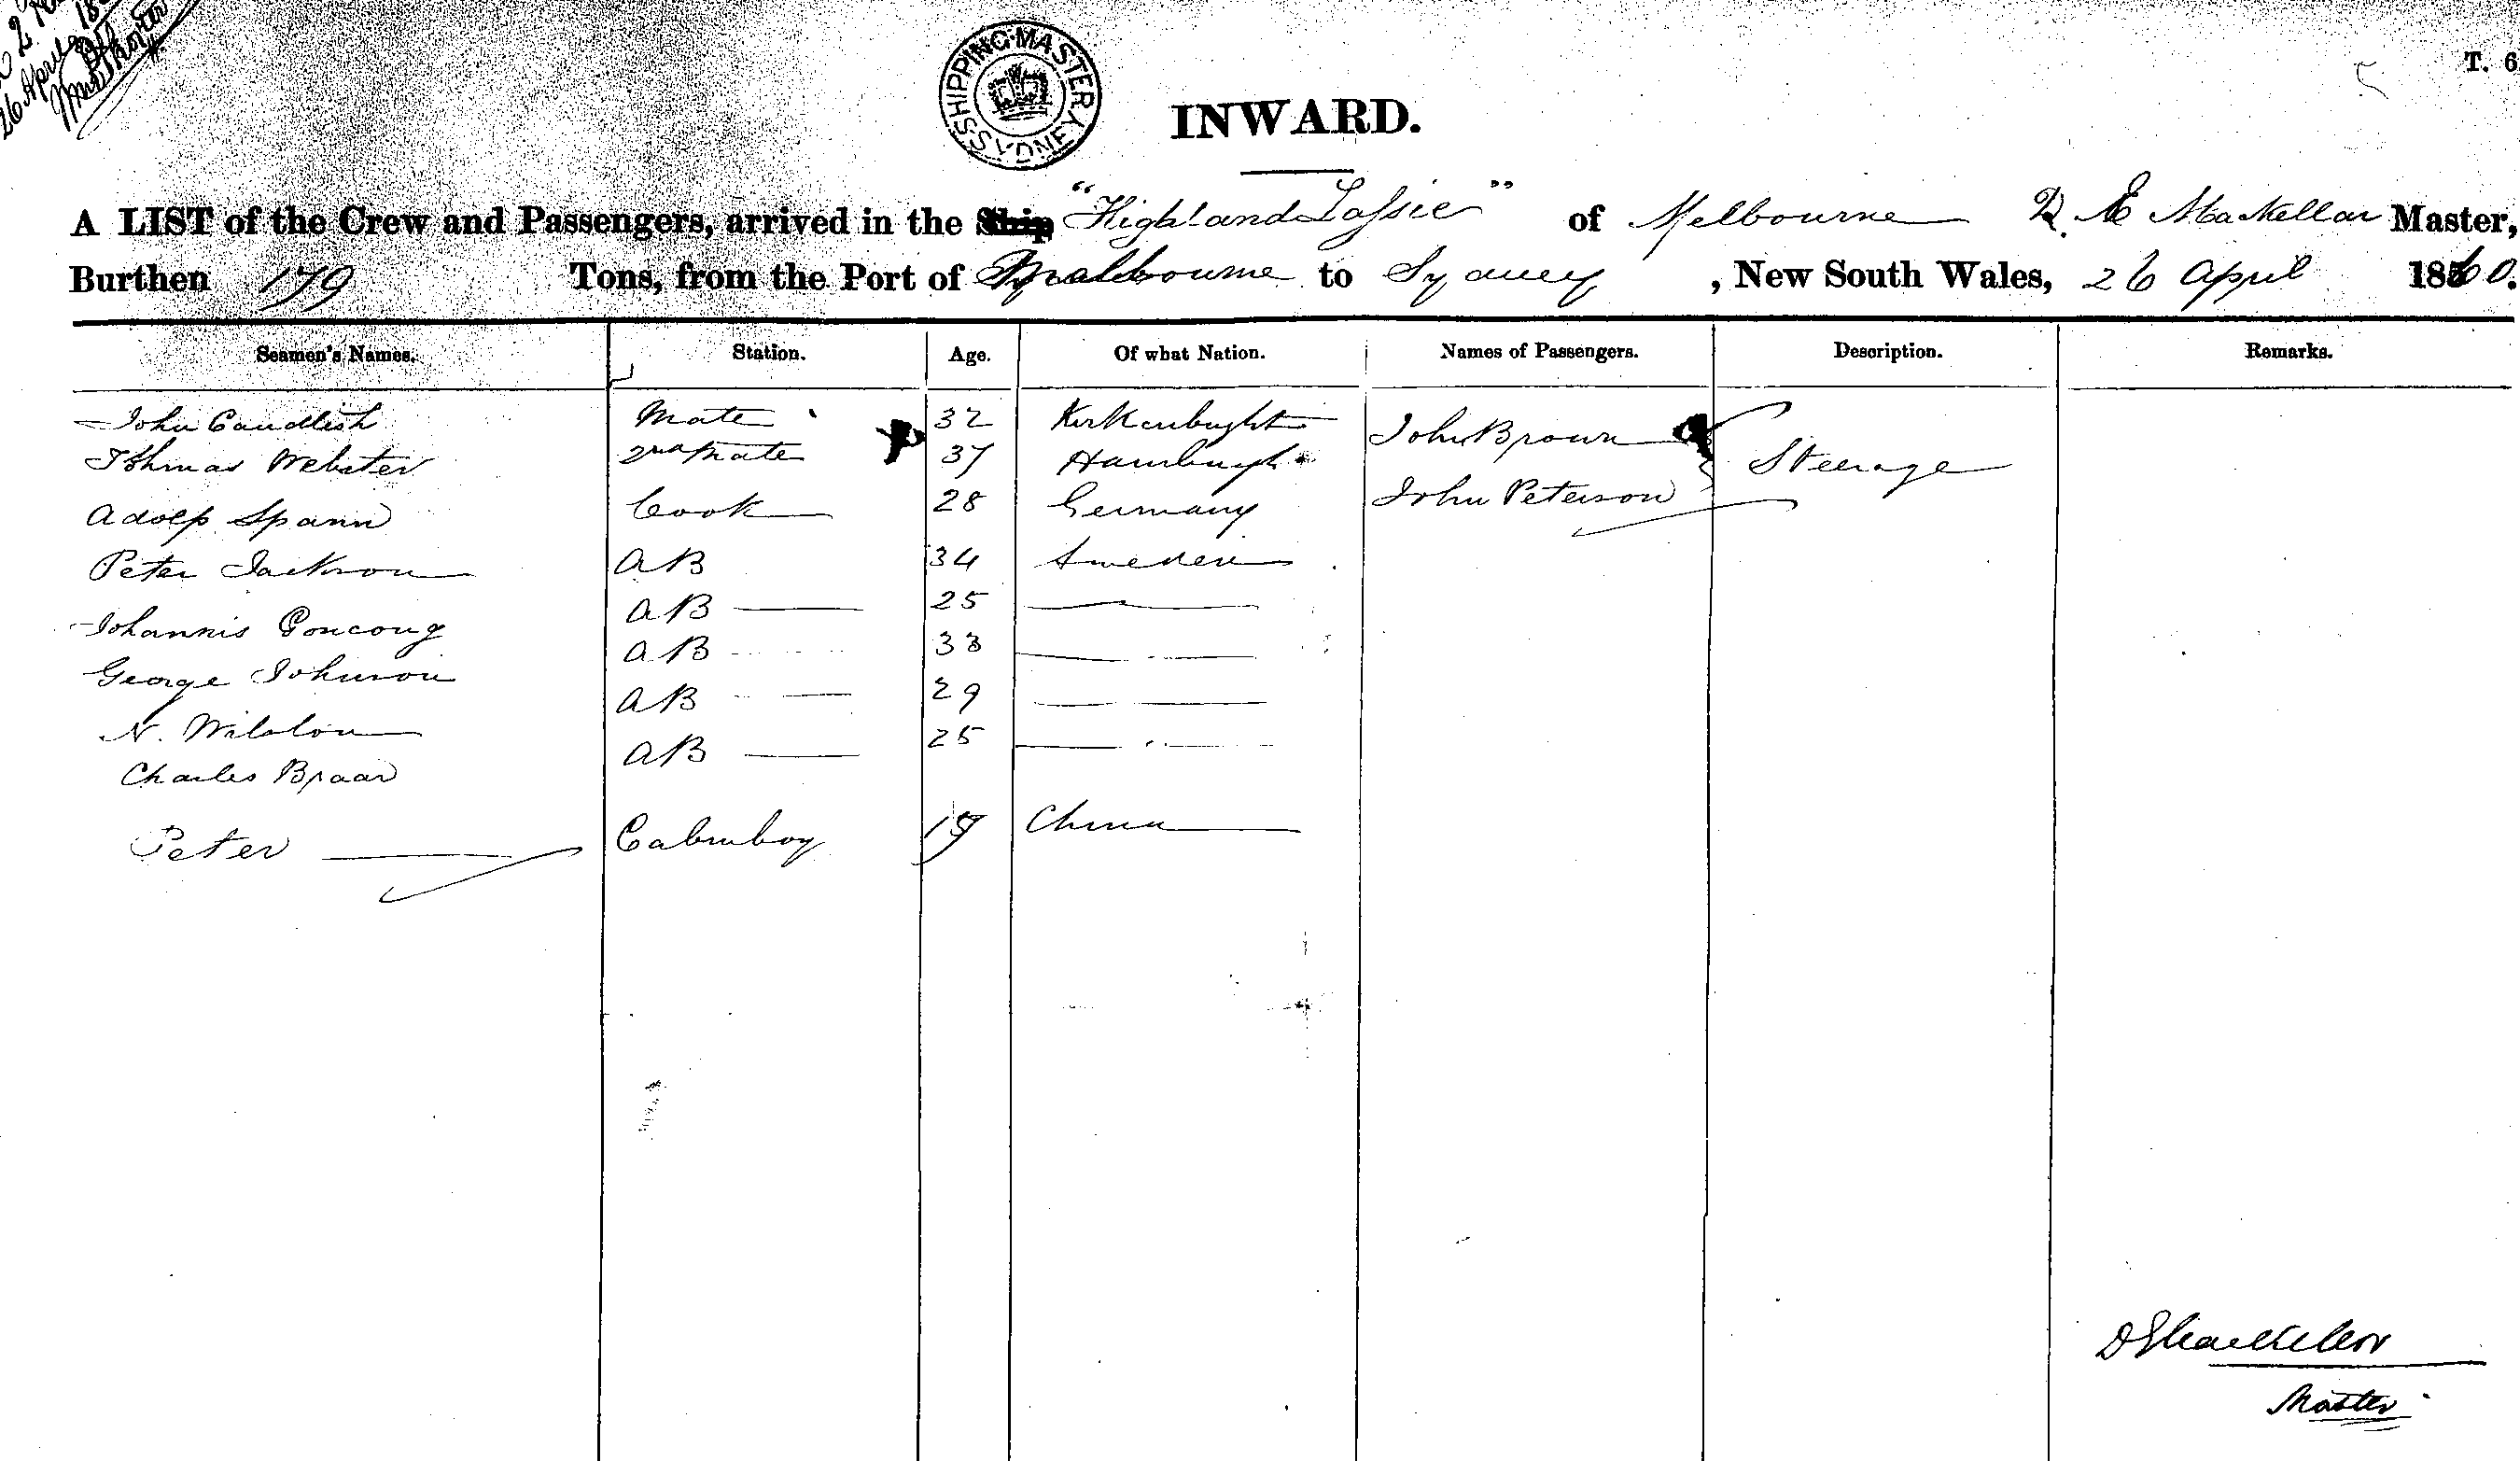 26 April
SHIPPING MASTER SYDNEY
T. 6
INWARD.
A LIST of the Crew and Passengers, arrived in the Ship "Highland Lassie" of Melbourne D. E MacKellar Master,
Burthen 179 Tons, from the Port of Melbourne to Sydney, New South Wales, 26 April 1860.
Seamen's Names. Station. Age. Of what Nation. Names of Passengers. Description. Remarks.
John Candlish Mate 32 Kirkcubright John Brown
Thomas Webster 2nd Mate 37 Hamburgh Steerage
Adolp Spann Cook 28 Germany John Peterson
Peter Jackson AB 34 Sweden
Johannis AB 25
George Johnson AB 33
N. AB 29
Charles Braar AB 25
Peter Cabinboy China
Master